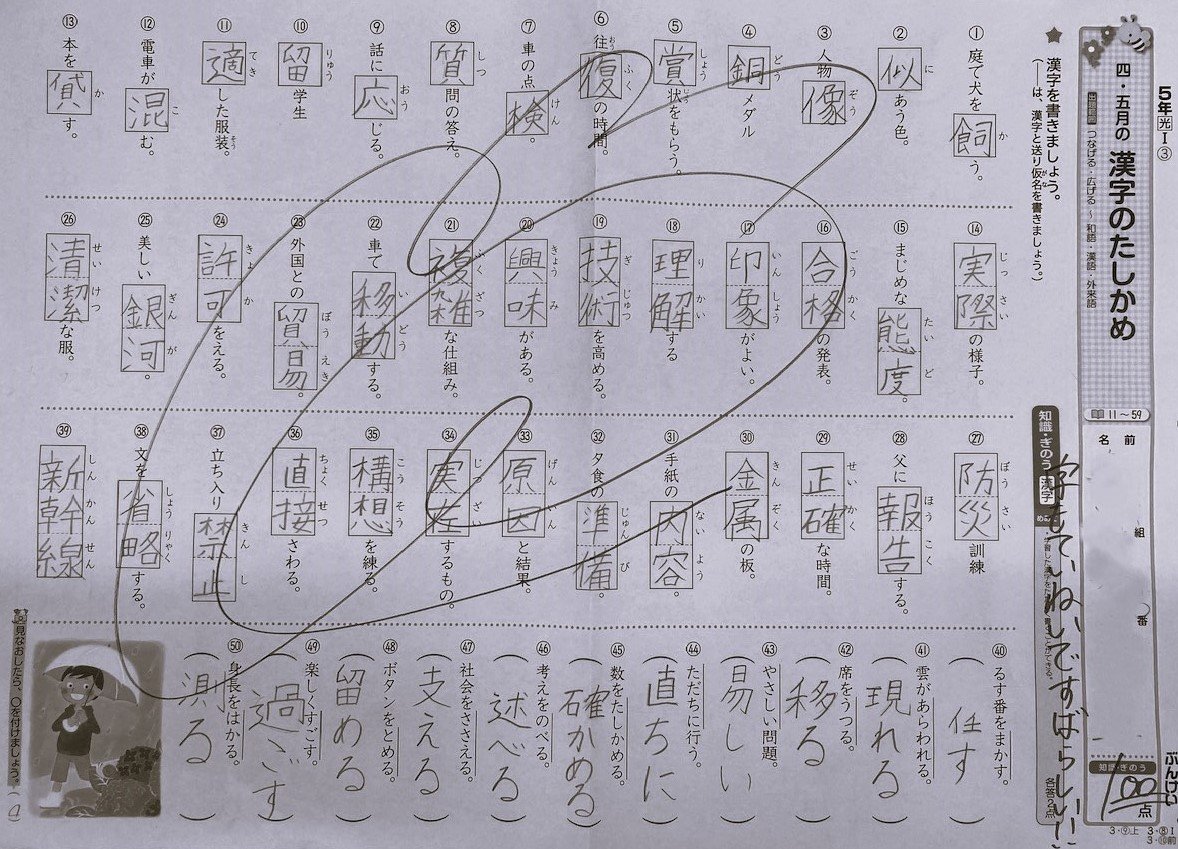 5年光Ⅰ③
四・五月の 漢字のたしかめ
出題範囲 つなげる・広げる ～ 和語・漢語・外来語
11～59
名前
組
番
知識・ぎのう
100点
ぶんけい
字もていねいですばらしい!!
★ 漢字を書きましょう。
(―は、漢字と送り仮名を書きましょう。)
知識・ぎのう 漢字
各答2点
① 庭で犬を飼う。
② 似あう色。
③ 人物像
④ 銅メダル
⑤ 賞状をもらう。
⑥ 往復の時間。
⑦ 車の点検
⑧ 質問の答え。
⑨ 話に応じる。
⑩ 留学生
⑪ 適した服装。
⑫ 電車が混む。
⑬ 本を貸す。
⑭ 実際の様子。
⑮ まじめな態度。
⑯ 合格の発表。
⑰ 印象がよい。
⑱ 理解する
⑲ 技術を高める。
⑳ 興味がある。
㉑ 複雑な仕組み。
㉒ 車で移動する。
㉓ 外国との貿易。
㉔ 許可をえる。
㉕ 美しい銀河。
㉖ 清潔な服。
㉗ 防災訓練
㉘ 父に報告する。
㉙ 正確な時間。
㉚ 金属の板。
㉛ 手紙の内容。
㉜ 夕食の準備。
㉝ 原因と結果。
㉞ 実在するもの。
㉟ 構想を練る。
㊱ 直接さわる。
㊲ 立ち入り禁止
㊳ 文を省略する。
㊴ 新幹線
㊵ るす番をまかす。(任す)
㊶ 雲があらわれる。(現れる)
㊷ 席をうつる。(移る)
㊸ やさしい問題。(易しい)
㊹ ただちに行う。(直ちに)
㊺ 数をたしかめる。(確かめる)
㊻ 考えをのべる。(述べる)
㊼ 社会をささえる。(支える)
㊽ ボタンをとめる。(留める)
㊾ 楽しくすごす。(過ごす)
㊿ 身長をはかる。(測る)
見なおしたら、○を付けましょう。